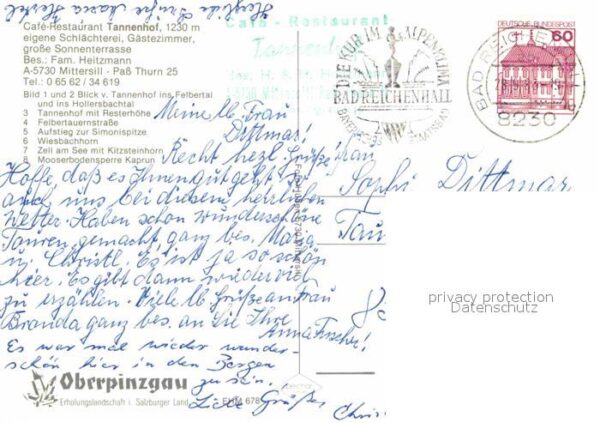 Café-Restaurant Tannenhof, 1230 m
eigene Schlächterei, Gästezimmer,
große Sonnenterrasse
Bes.: Fam. Heitzmann
A-5730 Mittersill - Paß Thurn 25
Tel.: 0 65 62 / 34 619
Bild 1 und 2 Blick v. Tannenhof ins Felbertal
und ins Hollersbachtal
3 Tannenhof mit Resterhöhe
4 Felbertauernstraße
5 Aufstieg zur Simonispitze
6 Wiesbachhorn
7 Zell am See mit Kitzsteinhorn
8 Mooserbodensperre Kaprun
Café - Restaurant
Tannenhof
DIE KUR IM ALPENKLIMA
BAD REICHENHALL
BAYERISCHES STAATSBAD
DEUTSCHE BUNDESPOST
60
BAD REICHENHALL
8230
Meine lb. Frau
Dittmar!
Recht herzl. Grüße!
Hoffe, daß es Ihnen gut geht so
auch uns bei diesem herrlichen
Wetter. Haben schon wunderschöne
Touren gemacht ganz bes. Maria
u. Christl. Es ist ja so schön
hier. Es gibt dann so viel
zu erzählen. Viele lb. Grüße an Frau
Branda ganz bes. an Sie Ihre
Anna Fischer!
Es war mal wieder wunder-
schön hier in den Bergen
zu sein.
Liebe Grüße
Chris
Frau
Sophi Dittmar
Tau
privacy protection
Datenschutz
Oberpinzgau
Erholungslandschaft i. Salzburger Land
EHM 678